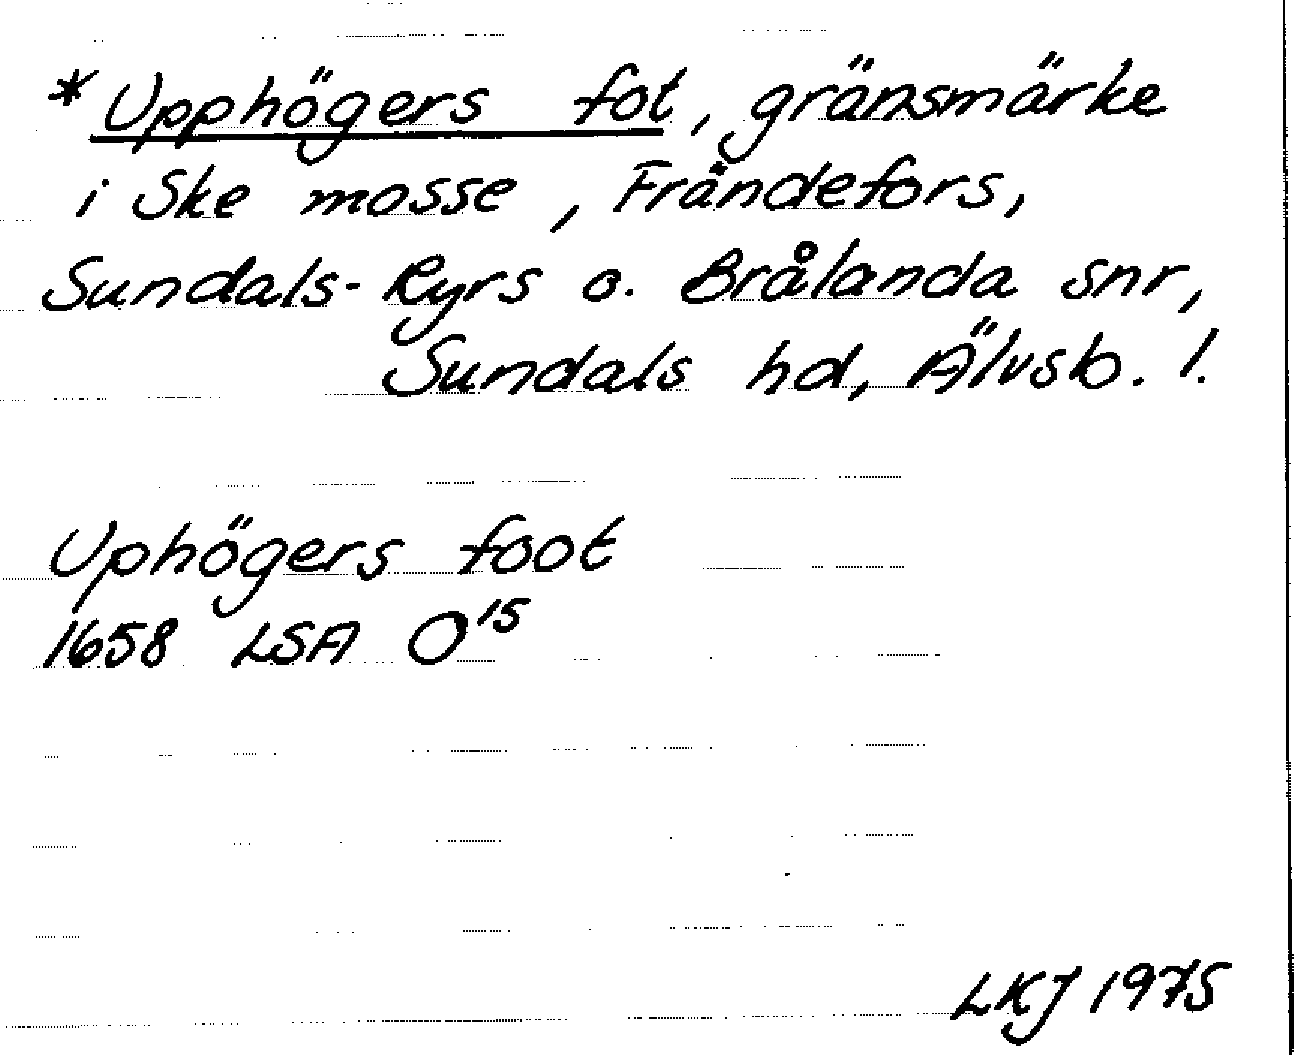 *Upphögers fot, gränsmärke
i Ske mosse, Frändefors,
Sundals-Ryrs o. Brålanda snr,
Sundals hd, Älvsb. l.
Uphögers foot
1658 LSA O15
LKJ 1975